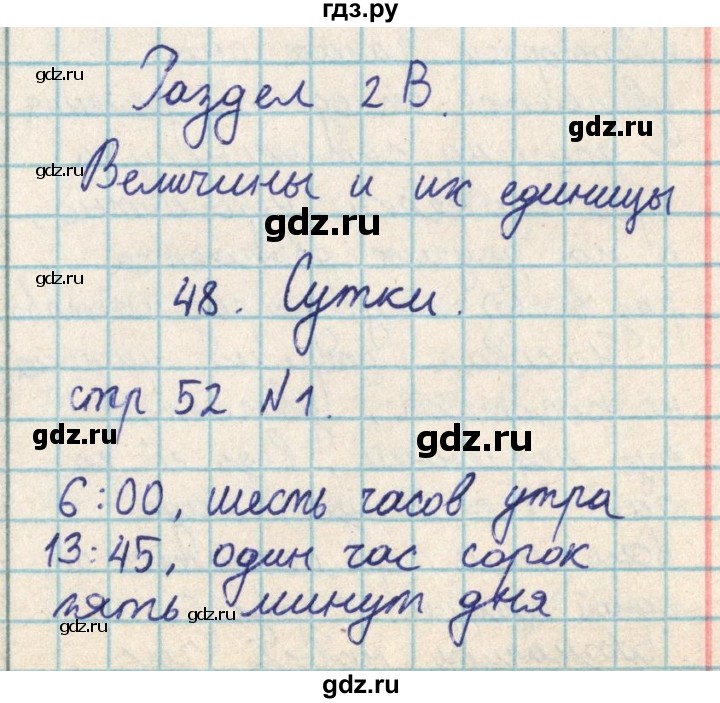 гдз.ру
gdz.ru
Раздел 2 В.
gdz.ru
gdz.ru
Величины и их единицы
gdz.ru
gdz.ru
48. Сутки.
стр 52 №1.
gdz.ru
gdz.ru
6:00, шесть часов утра
13:45, один час сорок
пять минут дня
gdz.ru
gdz.ru
gdz.ru